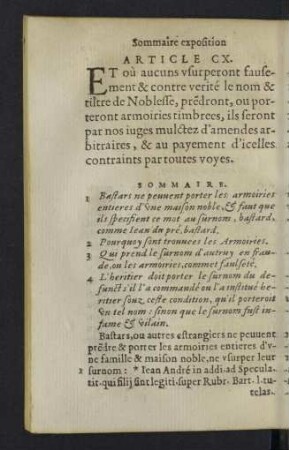 Sommaire exposition
ARTICLE CX.
ET où aucuns vsurperont fausse-
ment & contre verité le nom &
tiltre de Noblesse, prẽdront, ou por-
teront armoiries timbrees, ils seront
par nos iuges mulctez d'amendes ar-
bitraires, & au payement d'icelles
contraints par toutes voyes.
SOMMAIRE.
1 Bastars ne peuuent porter les armoiries
entieres d'vne maison noble, & faut que
ils specifient ce mot au surnom, bastard,
comme Iean du pré, bastard.
2 Pourquoy sont trouuees les Armoiries.
3 Qui prend le surnom d'autruy en frau-
de, ou les armoiries, commet faulseté.
4 L'heritier doit porter le surnom du de-
funct s'il l'a commandé ou l'a institué he-
ritier souz ceste condition, qu'il porteroit
vn tel nom: sinon que le surnom fust in-
fame & vilain.
Bastars, ou autres estrangiers ne peuuent
prẽdre & porter les armoiries entieres d'v-
ne famille & maison noble, ne vsurper leur
2 surnom: * Iean André in addi. ad Specula.
tit. qui filij sint legiti. super Rubr. Bart. l. tu-
telas.